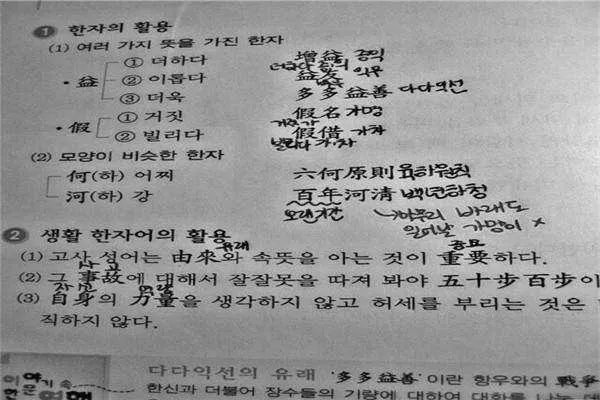 1 한자의 활용
(1) 여러 가지 뜻을 가진 한자
益 ① 더하다 增益 증익
② 이롭다 益友 익우
③ 더욱 多多益善 다다익선
假 ① 거짓 假名 가명
② 빌리다 假借 가차
(2) 모양이 비슷한 한자
何(하) 어찌 六何原則 육하원칙
河(하) 강 百年河淸 백년하청
오랜시간 아무리 바래도
일어날 가망이 x
2 생활 한자어의 활용
유래 중요
(1) 고사 성어는 由來와 속뜻을 아는 것이 重要하다.
사고
(2) 그 事故에 대해서 잘잘못을 따져 봐야 五十步百步이
자신 역량
(3) 自身의 力量을 생각하지 않고 허세를 부리는 것은
직하지 않다.
이야기 속
한문여행
다다익선의 유래 '多多益善'이란 항우와의 戰爭
한신과 더불어 장수들의 기량에 대하여 대화를 나눈 데